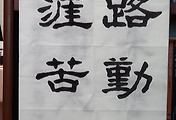 路勤
涯苦